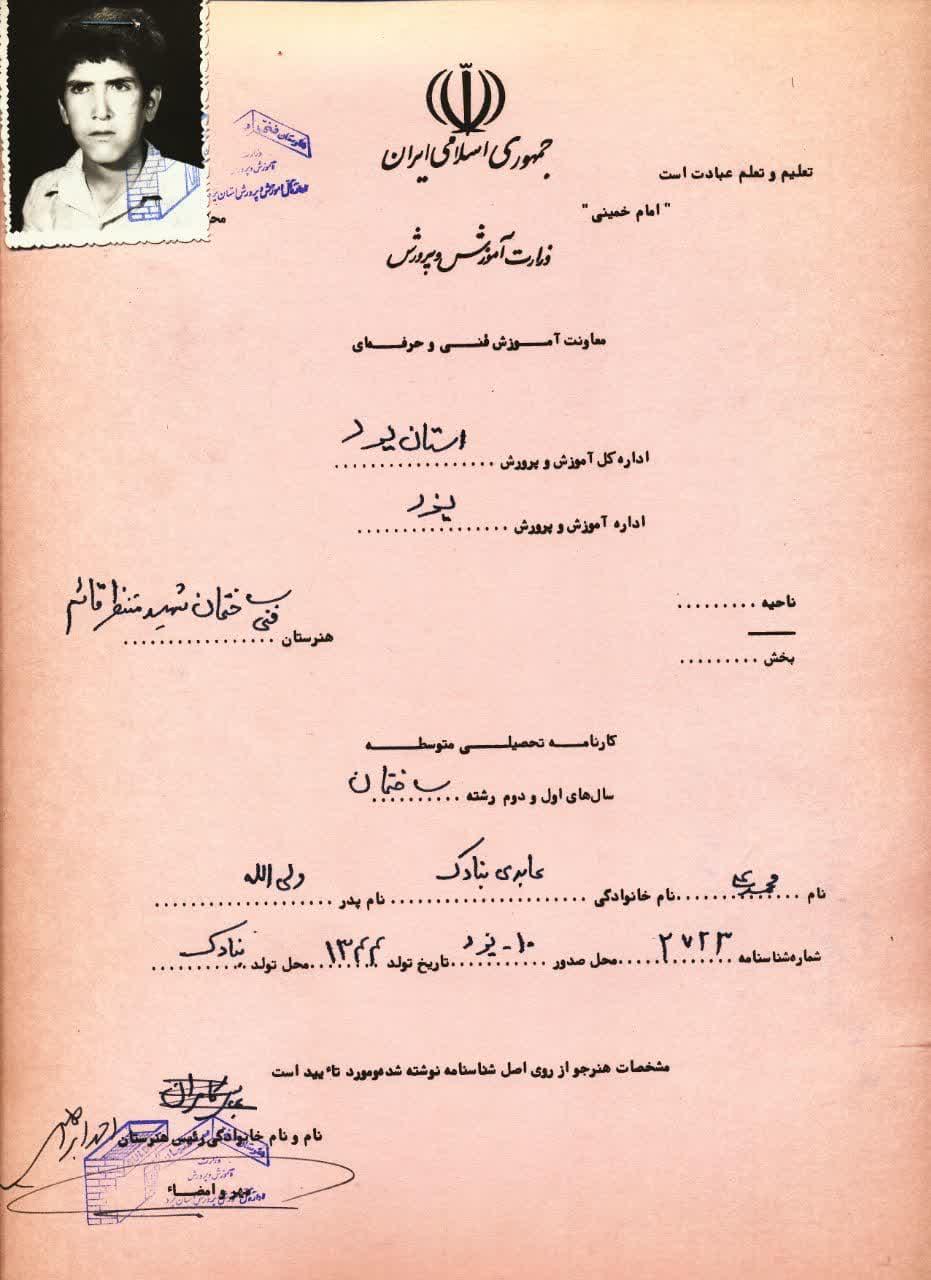 جمهوری اسلامی ایران
تعلیم و تعلم عبادت است
"امام خمینی"
وزارت آموزش و پرورش
معاونت آموزش فنی و حرفه‌ای
اداره کل آموزش و پرورش استان یزد
اداره آموزش و پرورش یزد
ناحیه
بخش
هنرستان فنی ساختمان شهید منتظر قائم
کارنامه تحصیلی متوسطه
سال‌های اول و دوم رشته ساختمان
نام محمدعلی نام خانوادگی عابدی بنادک نام پدر ولی الله
شماره شناسنامه ۲۷۲۳ محل صدور ۱۰- یزد تاریخ تولد ۱۳۴۴ محل تولد بنادک
مشخصات هنرجو از روی اصل شناسنامه نوشته شده و مورد تاءیید است
نام و نام خانوادگی رئیس هنرستان احمد
مهر و امضاء